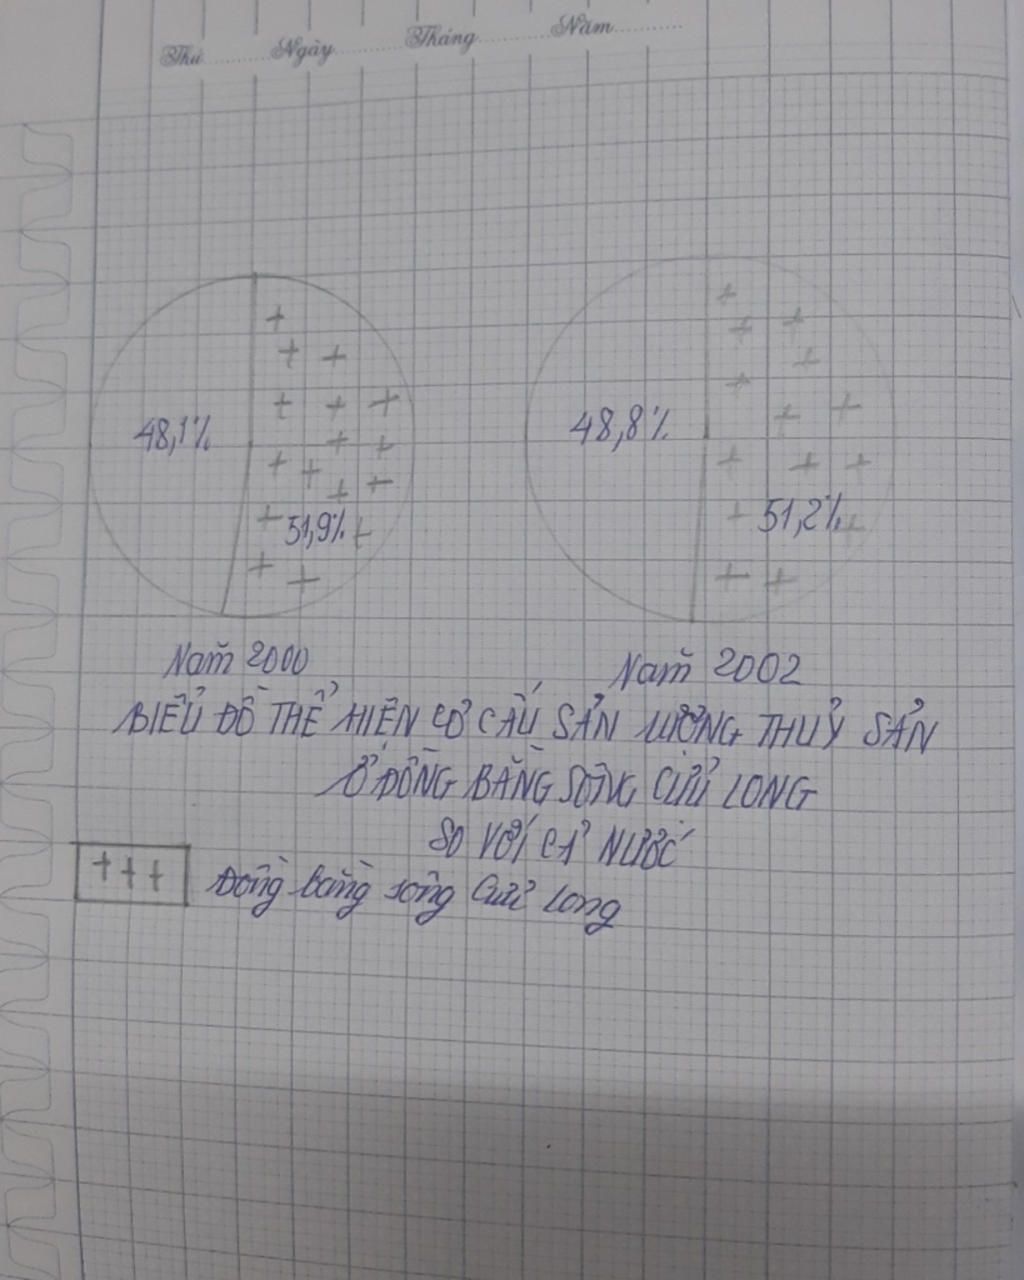 Thứ Ngày Tháng Năm
48,1%
51,9%
48,8%
51,2%
Năm 2000
Năm 2002
BIỂU ĐỒ THỂ HIỆN CƠ CẤU SẢN LƯỢNG THUỶ SẢN
Ở ĐỒNG BẰNG SÔNG CỬU LONG
SO VỚI CẢ NƯỚC
Đồng bằng sông Cửu Long